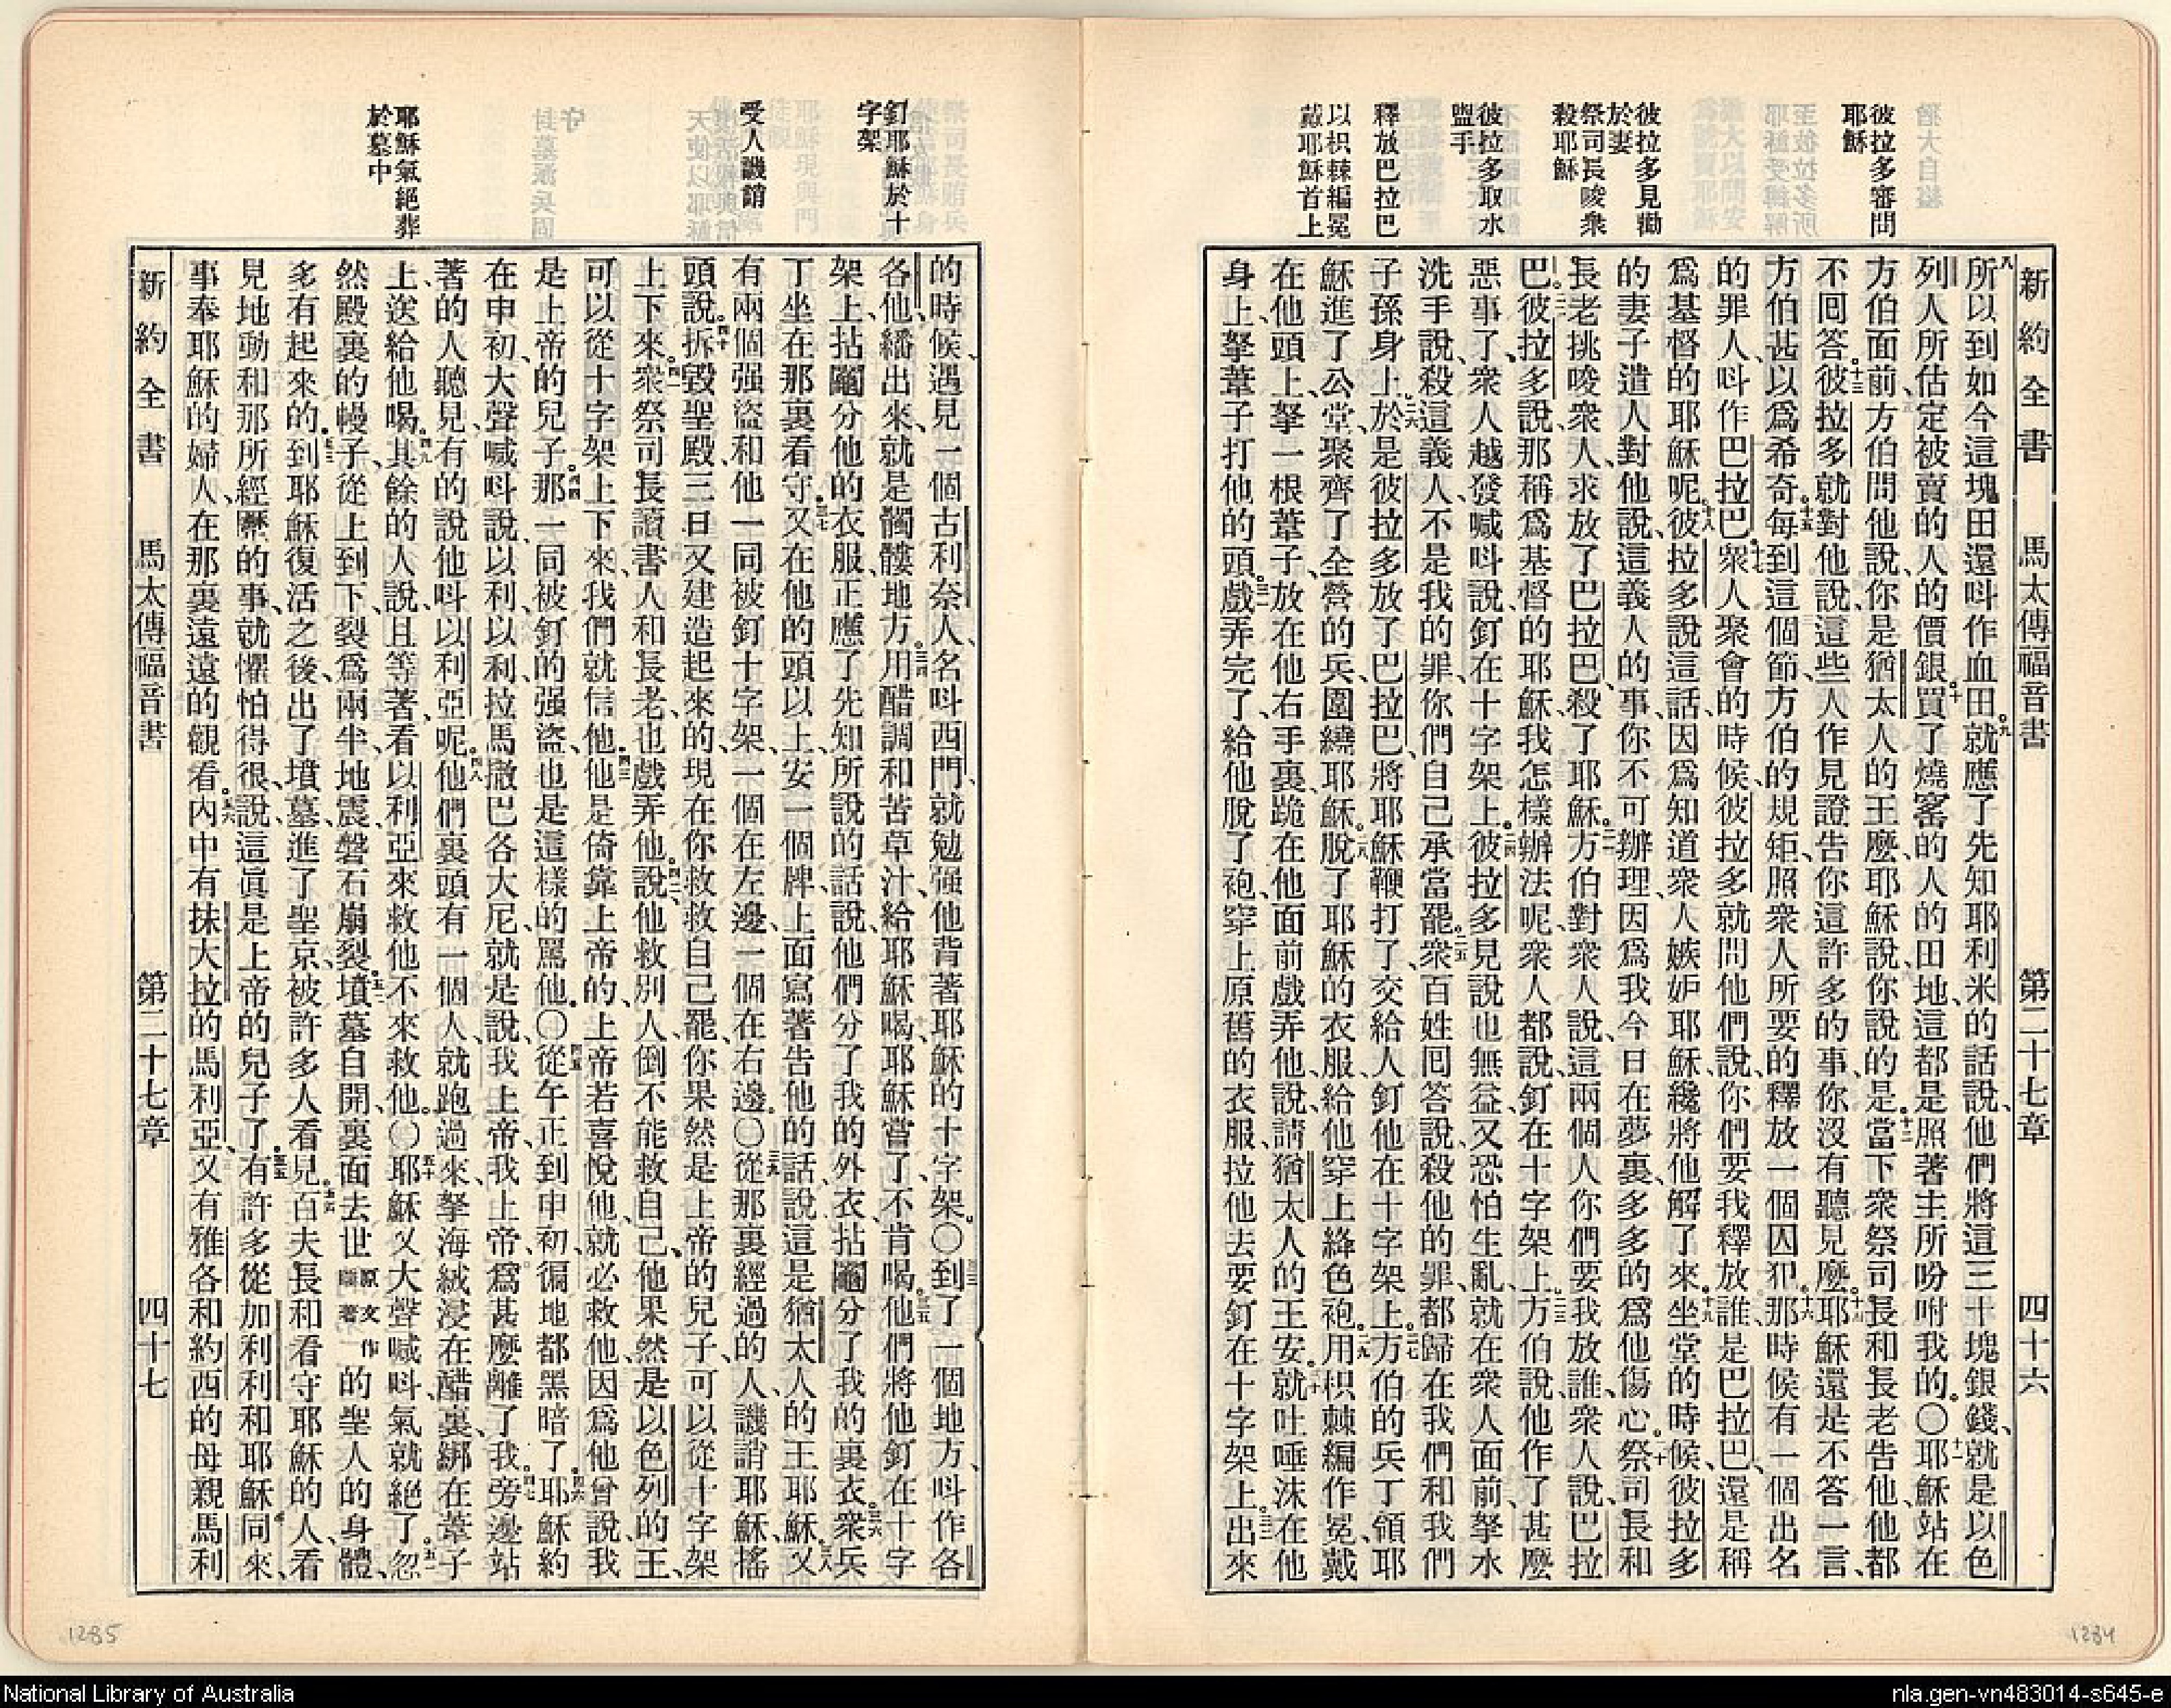 新約全書 馬太傳福音書 第二十七章 四十六
彼拉多審問
耶穌
彼拉多見勸
於妻
祭司長唆衆
殺耶穌
彼拉多取水
盥手
釋放巴拉巴
以枳棘編冕
戴耶穌首上
八所以到如今這塊田還呌作血田。九就應了先知耶利米的話說、他們將這三十塊銀錢、就是以色
列人所估定被賣的人的價銀。十買了燒窰的人的田地、這都是照著主所吩咐我的。〇十一耶穌站在
方伯面前、方伯問他說、你是猶太人的王麼、耶穌說、你說的是。十二當下衆祭司長和長老告他、他都
不回答。十三彼拉多就對他說、這些人作見證告你這許多的事、你沒有聽見麼。十四耶穌還是不答一言、
方伯甚以爲希奇。十五每到這個節、方伯的規矩、照衆人所要的釋放一個囚犯。十六那時候有一個出名
的罪人、呌作巴拉巴。十七衆人聚會的時候、彼拉多就問他們說、你們要我釋放誰、是巴拉巴、還是稱
爲基督的耶穌呢。十八彼拉多說這話、因爲知道衆人嫉妒耶穌、纔將他解了來。十九坐堂的時候、彼拉多
的妻子遣人對他說、這義人的事、你不可辦理、因爲我今日在夢裏、多多的爲他傷心。二十祭司長和
長老挑唆衆人、求放了巴拉巴、殺了耶穌。二一方伯對衆人說、這兩個人、你們要我放誰、衆人說、巴拉
巴。二二彼拉多說、那稱爲基督的耶穌、我怎樣辦法呢、衆人都說、釘在十字架上。二三方伯說、他作了甚麼
惡事了、衆人越發喊呌說、釘在十字架上。二四彼拉多見說也無益、又恐怕生亂、就在衆人面前、拏水
洗手說、殺這義人、不是我的罪、你們自己承當罷。二五衆百姓回答說、殺他的罪、都歸在我們和我們
子孫身上。二六於是彼拉多放了巴拉巴、將耶穌鞭打了、交給人釘他在十字架上。二七方伯的兵丁領耶
穌進了公堂、聚齊了全營的兵、圍繞耶穌。二八脫了耶穌的衣服、給他穿上絳色袍。二九用枳棘編作冕、戴
在他頭上、拏一根葦子、放在他右手裏、跪在他面前戲弄他、說、請猶太人的王安。三十就吐唾沫在他
身上、拏葦子打他的頭。三一戲弄完了、給他脫了袍、穿上原舊的衣服、拉他去要釘在十字架上。三二出來
釘耶穌於十
字架
受人譏誚
耶穌氣絕葬
於墓中
的時候、遇見一個古利奈人、名呌西門、就勉强他背著耶穌的十字架。〇三三到了一個地方、呌作各
各他、繙出來、就是髑髏地方。三四用醋調和苦草汁、給耶穌喝、耶穌嘗了、不肯喝。三五他們將他釘在十字
架上、拈鬮分他的衣服、正應了先知所說的話說、他們分了我的外衣、拈鬮分了我的裏衣。三六衆兵
丁坐在那裏看守。三七又在他的頭以上、安一個牌、上面寫著告他的話說、這是猶太人的王耶穌。三八又
有兩個强盜、和他一同被釘十字架、一個在左邊、一個在右邊。〇三九從那裏經過的人、譏誚耶穌、搖
頭說。四十拆毀聖殿、三日又建造起來的、現在你救救自己罷、你果然是上帝的兒子、可以從十字架
上下來。四一衆祭司長讀書人和長老、也戲弄他。四二說、他救別人、倒不能救自己、他果然是以色列的王、
可以從十字架上下來、我們就信他。四三他是倚靠上帝的、上帝若喜悅他、就必救他、因爲他曾說、我
是上帝的兒子。四四那一同被釘的强盜、也是這樣的罵他。〇四五從午正到申初、徧地都黑暗了。四六耶穌約
在申初、大聲喊呌說、以利、以利、拉馬撒巴各大尼、就是說、我上帝、我上帝、爲甚麼離了我。四七旁邊站
著的人聽見、有的說、他呌以利亞呢。四八他們裏頭有一個人、就跑過來、拏海絨浸在醋裏、綁在葦子
上、送給他喝。四九其餘的人說、且等著看以利亞來救他不來救他。〇五十耶穌又大聲喊呌、氣就絕了。五一忽
然殿裏的幔子、從上到下、裂爲兩半、地震、磐石崩裂。五二墳墓自開、裏面去世原文作睡著的聖人的身體、
多有起來的。五三到耶穌復活之後、出了墳墓、進了聖京、被許多人看見。五四百夫長和看守耶穌的人、看
見地動和那所經歷的事、就懼怕得很、說、這眞是上帝的兒子了。五五有許多從加利利和耶穌同來、
事奉耶穌的婦人、在那裏遠遠的觀看。五六內中有抹大拉的馬利亞、又有雅各和約西的母親馬利
新約全書 馬太傳福音書 第二十七章 四十七
1285
1284
National Library of Australia
nla.gen-vn483014-s645-e